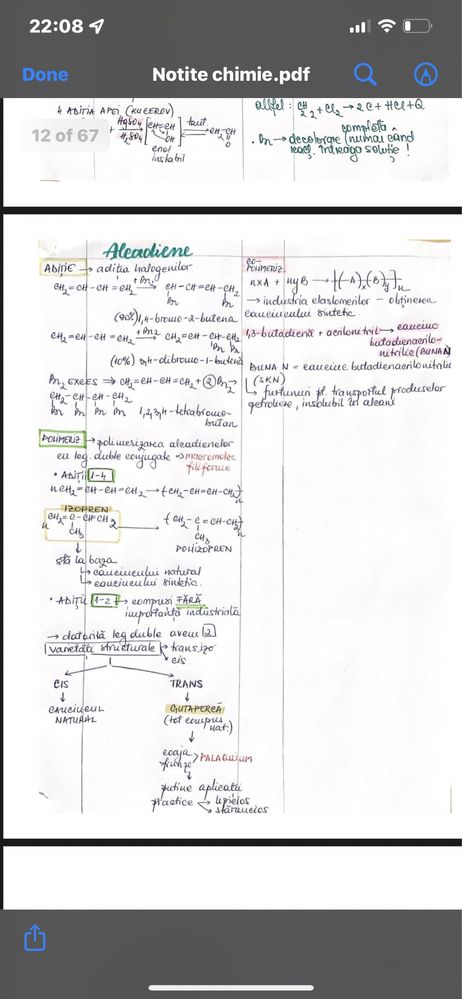 22:08
Done
Notite chimie.pdf
12 of 67
4 ADIȚIA APEI (KUCEROV)
HgSO4
H2SO4
CH=CH
OH
enol
instabil
taut.
CH2-CH
O
altfel: CH2 + Cl2 → 2C + HCl + Q
completă
• Br2 → decolorare (numai când
reacț. întreaga soluție!
Alcadiene
ADIȚIE → aditia halogenilor
CH2=CH-CH=CH2 +Br2→ CH-CH=CH-CH2
Br Br
(90%) 1,4-bromo-2-butena
CH2=CH-CH=CH2 +Br2→ CH2=CH-CH-CH2
Br Br
(10%) 3,4-dibromo-1-butenă
Br2 EXCES ⇒ CH2=CH-CH=CH2 + 2Br2→
CH2-CH-CH-CH2
Br Br Br Br 1,2,3,4-tetrabromo-
butan
POLIMERIZ → polimerizarea alcadienelor
cu leg. duble conjugate → macromolec
filiforme
• ADIȚII 1-4
nCH2=CH-CH=CH2 → (CH2-CH=CH-CH2)n
IZOPREN
n CH2=C-CH=CH2 → (CH2-C=CH-CH2)n
CH3 CH3
POLIIZOPREN
stă la baza
↳ cauciucului natural
↳ cauciucului sintetic
• ADIȚII 1-2 → compusi FĂRĂ
importanta industriala
→ datorită leg duble avem 2
varietăți structurale → trans, izo
cis
CIS TRANS
CAUCIUCUL
NATURAL
GUTAPERCĂ
(tot compus
nat.)
coaja
frunze > PALAQUIUM
putine aplicatii
practice → lipicios
→ sfărâmicios
CO-
POLIMERIZ.
nxA + nyB → [(A)x(B)y]n
→ industria elastomerilor - obținerea
cauciucului sintetic
1,3-butadienă + acrilonitril → cauciuc
butadienacrilo-
nitrilic (BUNA N)
BUNA N = cauciuc butadienacrilonitrilic
(SKN)
↳ furtunuri pt. transportul produselor
petroliere, insolubil în alcani